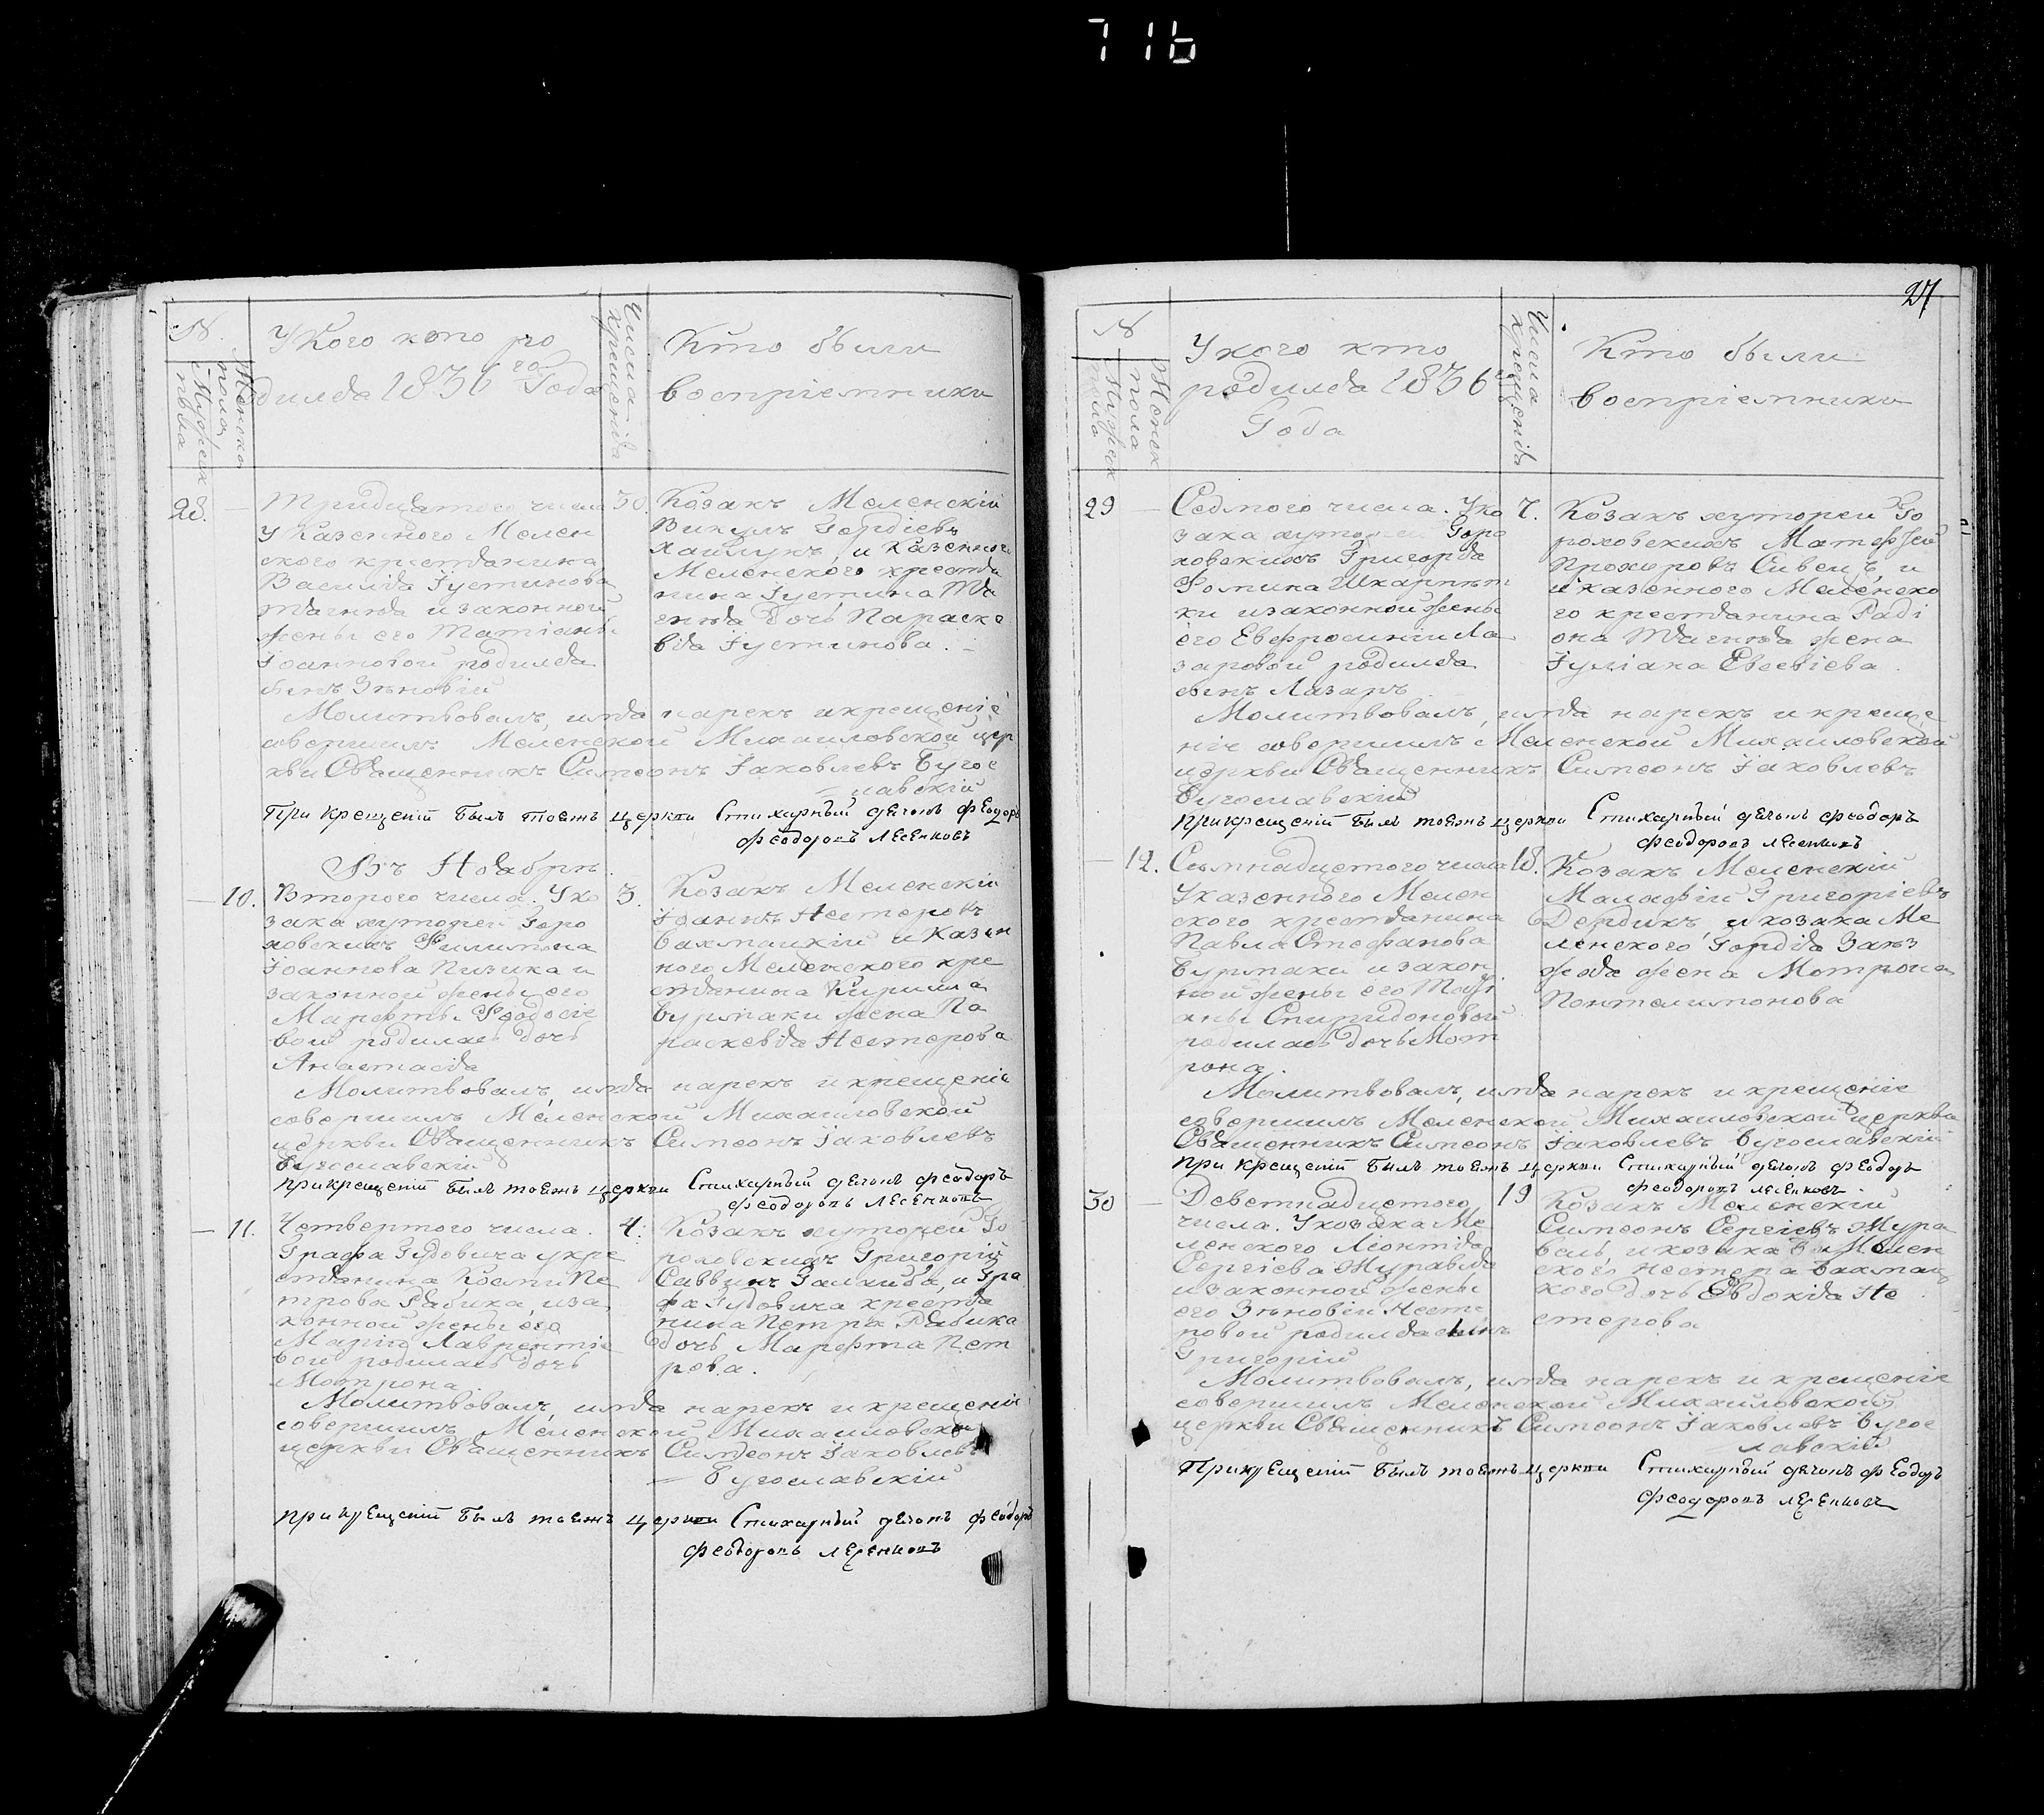 716
№.
Мужеск
пола
Женска
пола
У Кого кто ро
дился 1836го Года
Числа
крещенія
Кто были
воспріемники
28.
Тридцатого числа
У Казенного Мелен
ского крестянина
Василія Іустинова
и законной
жены его Татіаны
Іоанновой родился
сынъ Зѣновій
30.
Козакъ Меленскій
Викулъ Гордіевъ
и Казенного
Меленского крестя
нина Іустина
дочь Параске
вія Іустинова.
Молитвовалъ, имя нарекъ и крещеніе
совершилъ Меленской Михаиловской цер
кви Священникъ Симеонъ Іаковлевъ Бугос
лавскій
При крещеніи былъ тоежъ церкви Стихарный дячокъ Феодоръ
Феодоровъ Лесенковъ
Въ Ноябрѣ
10.
Второго числа. У ко
зака хуторей Горо
ховскихъ Филимона
Іоаннова Пизика и
законной жены его
Марфы Феодосіе
вой родилась дочь
Анастасія
3.
Козакъ Меленскій
Іоаннъ Нестеровъ
Бахмацкій и Казен
ного Меленского кре
стянина Кирилла
Бурмаки жена Па
раскевія Нестерова
Молитвовалъ, имя нарекъ и крещеніе
совершилъ Меленской Михаиловской
церкви Священникъ Симеонъ Іаковлевъ
Бугославскій
При крещеніи былъ тоежъ церкви Стихарный дячокъ Феодоръ
Феодоровъ Лесенковъ
11.
Четвертого числа.
Графа Гудовича у кре
стянина Космы Пе
трова Рябика, и за
конной жены его
Маріи Лаврентіе
вой родилась дочь
Мотрона
4.
Козакъ хуторей Го
роховскихъ Григорій
Саввинъ и Гра
фа Гудовича крестя
нина Петра Рябика
дочь Марфа Пет
рова.
Молитвовалъ, имя нарекъ и крещеніе
совершилъ Меленской Михаиловской
церкви Священникъ Симеонъ Іаковлевъ
Бугославскій
При крещеніи былъ тоежъ церкви Стихарный дячокъ Феодоръ
Феодоровъ Лесенковъ
27
№
Мужеск
пола
Женск
пола
У кого кто
родился 1836го
Года
Числа
крещенія
Кто были
воспріемники
29
Седмого числа. У ко
зака хуторей Горо
ховскихъ Григорія
Фомина Шкарпет
ки и законной жены
его Евфросиніи Ла
заровой родился
сынъ Лазарь
7.
Козакъ хуторей Го
роховскихъ Матфей
Прохоровъ Сивецъ и
казенного Меленско
го крестянина Раді
она жена
Іуліана Евсевіева.
Молитвовалъ, имя нарекъ и креще
ніе совершилъ Меленской Михаиловской
церкви Священникъ Симеонъ Іаковлевъ
Бугославскій
При крещеніи былъ тоежъ церкви Стихарный дячокъ Феодоръ
Феодоровъ Лесенковъ
12.
Семнадцетого числа
У казенного Мелен
ского крестянина
Павла Стефанова
Бурмаки и закон
ной жены его Марі
аны Спиридоновой
родилась дочь Мот
рона.
18.
Козакъ Меленскій
Малафій Григоріевъ
Дердикъ, и козака Ме
ленского Гордія
жена Мотрона
Понтелимонова
Молитвовалъ, имя нарекъ и крещеніе
совершилъ Меленской Михаиловской церкви
Священникъ Симеонъ Іаковлевъ Бугославскій
При крещеніи былъ тоежъ церкви Стихарный дячокъ Феодоръ
Феодоровъ Лесенковъ
30
Деветнадцетого
числа. У козака Ме
ленского Леонтія
Сергіева Журавля
и законной жены
его Зѣновіи Несте
ровой родился сынъ
Григорій
19
Козакъ Меленскій
Симеонъ Сергіевъ Жура
вель, и козака Мелен
ского Нестера Бахмац
кого дочь Евдокія Не
стерова
Молитвовалъ, имя нарекъ и крещеніе
совершилъ Меленской Михаиловской
церкви Священникъ Симеонъ Іаковлевъ Бугос
лавскій
При крещеніи былъ тоежъ церкви Стихарный дячокъ Феодоръ
Феодоровъ Лесенковъ